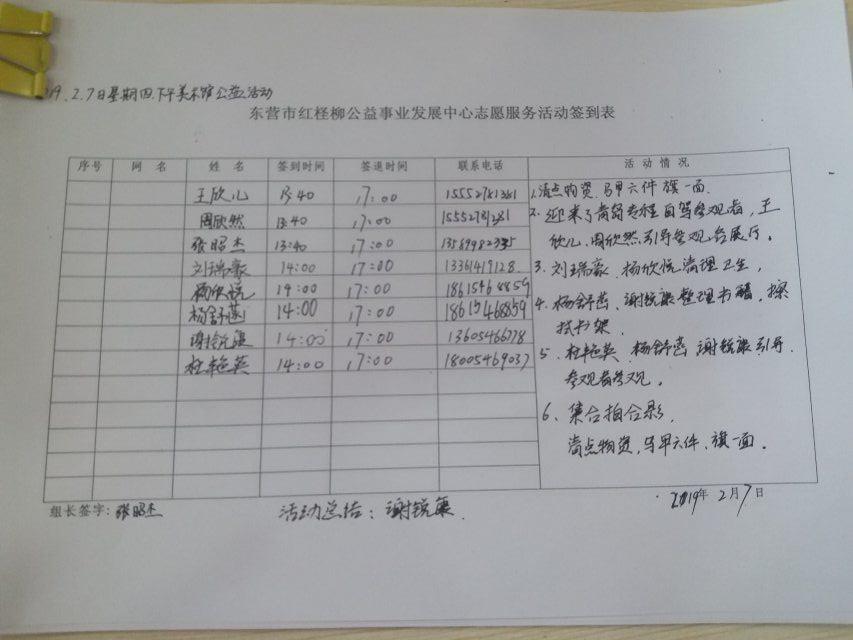 19.2.7日星期四.下午美术馆公益活动
东营市红柽柳公益事业发展中心志愿服务活动签到表
序号 网名 姓名 签到时间 签退时间 联系电话 活动情况
王欣儿 13:40 17:00
周欣然 13:40 17:00
张昭杰 13:40 17:00
刘瑞豪 14:00 17:00 13361419128
杨欣悦 14:00 17:00 18615468859
杨舒茜 14:00 17:00 18615468859
谢锐康 14:00 17:00 13605466778
杜艳英 14:00 17:00 18005469037
1.清点物资.马甲六件 旗一面.
2.迎来了青岛专程自驾参观者,王
欣儿、周欣然引导参观各展厅。
3.刘瑞豪 杨欣悦清理卫生,
4.杨舒茜、谢锐康整理书籍,擦
拭书架.
5.杜艳英 杨舒茜 谢锐康引导
参观者参观。
6、集合拍合影.
清点物资,马甲六件、旗一面.
组长签字:张昭杰 活动总结:谢锐康 2019年2月7日